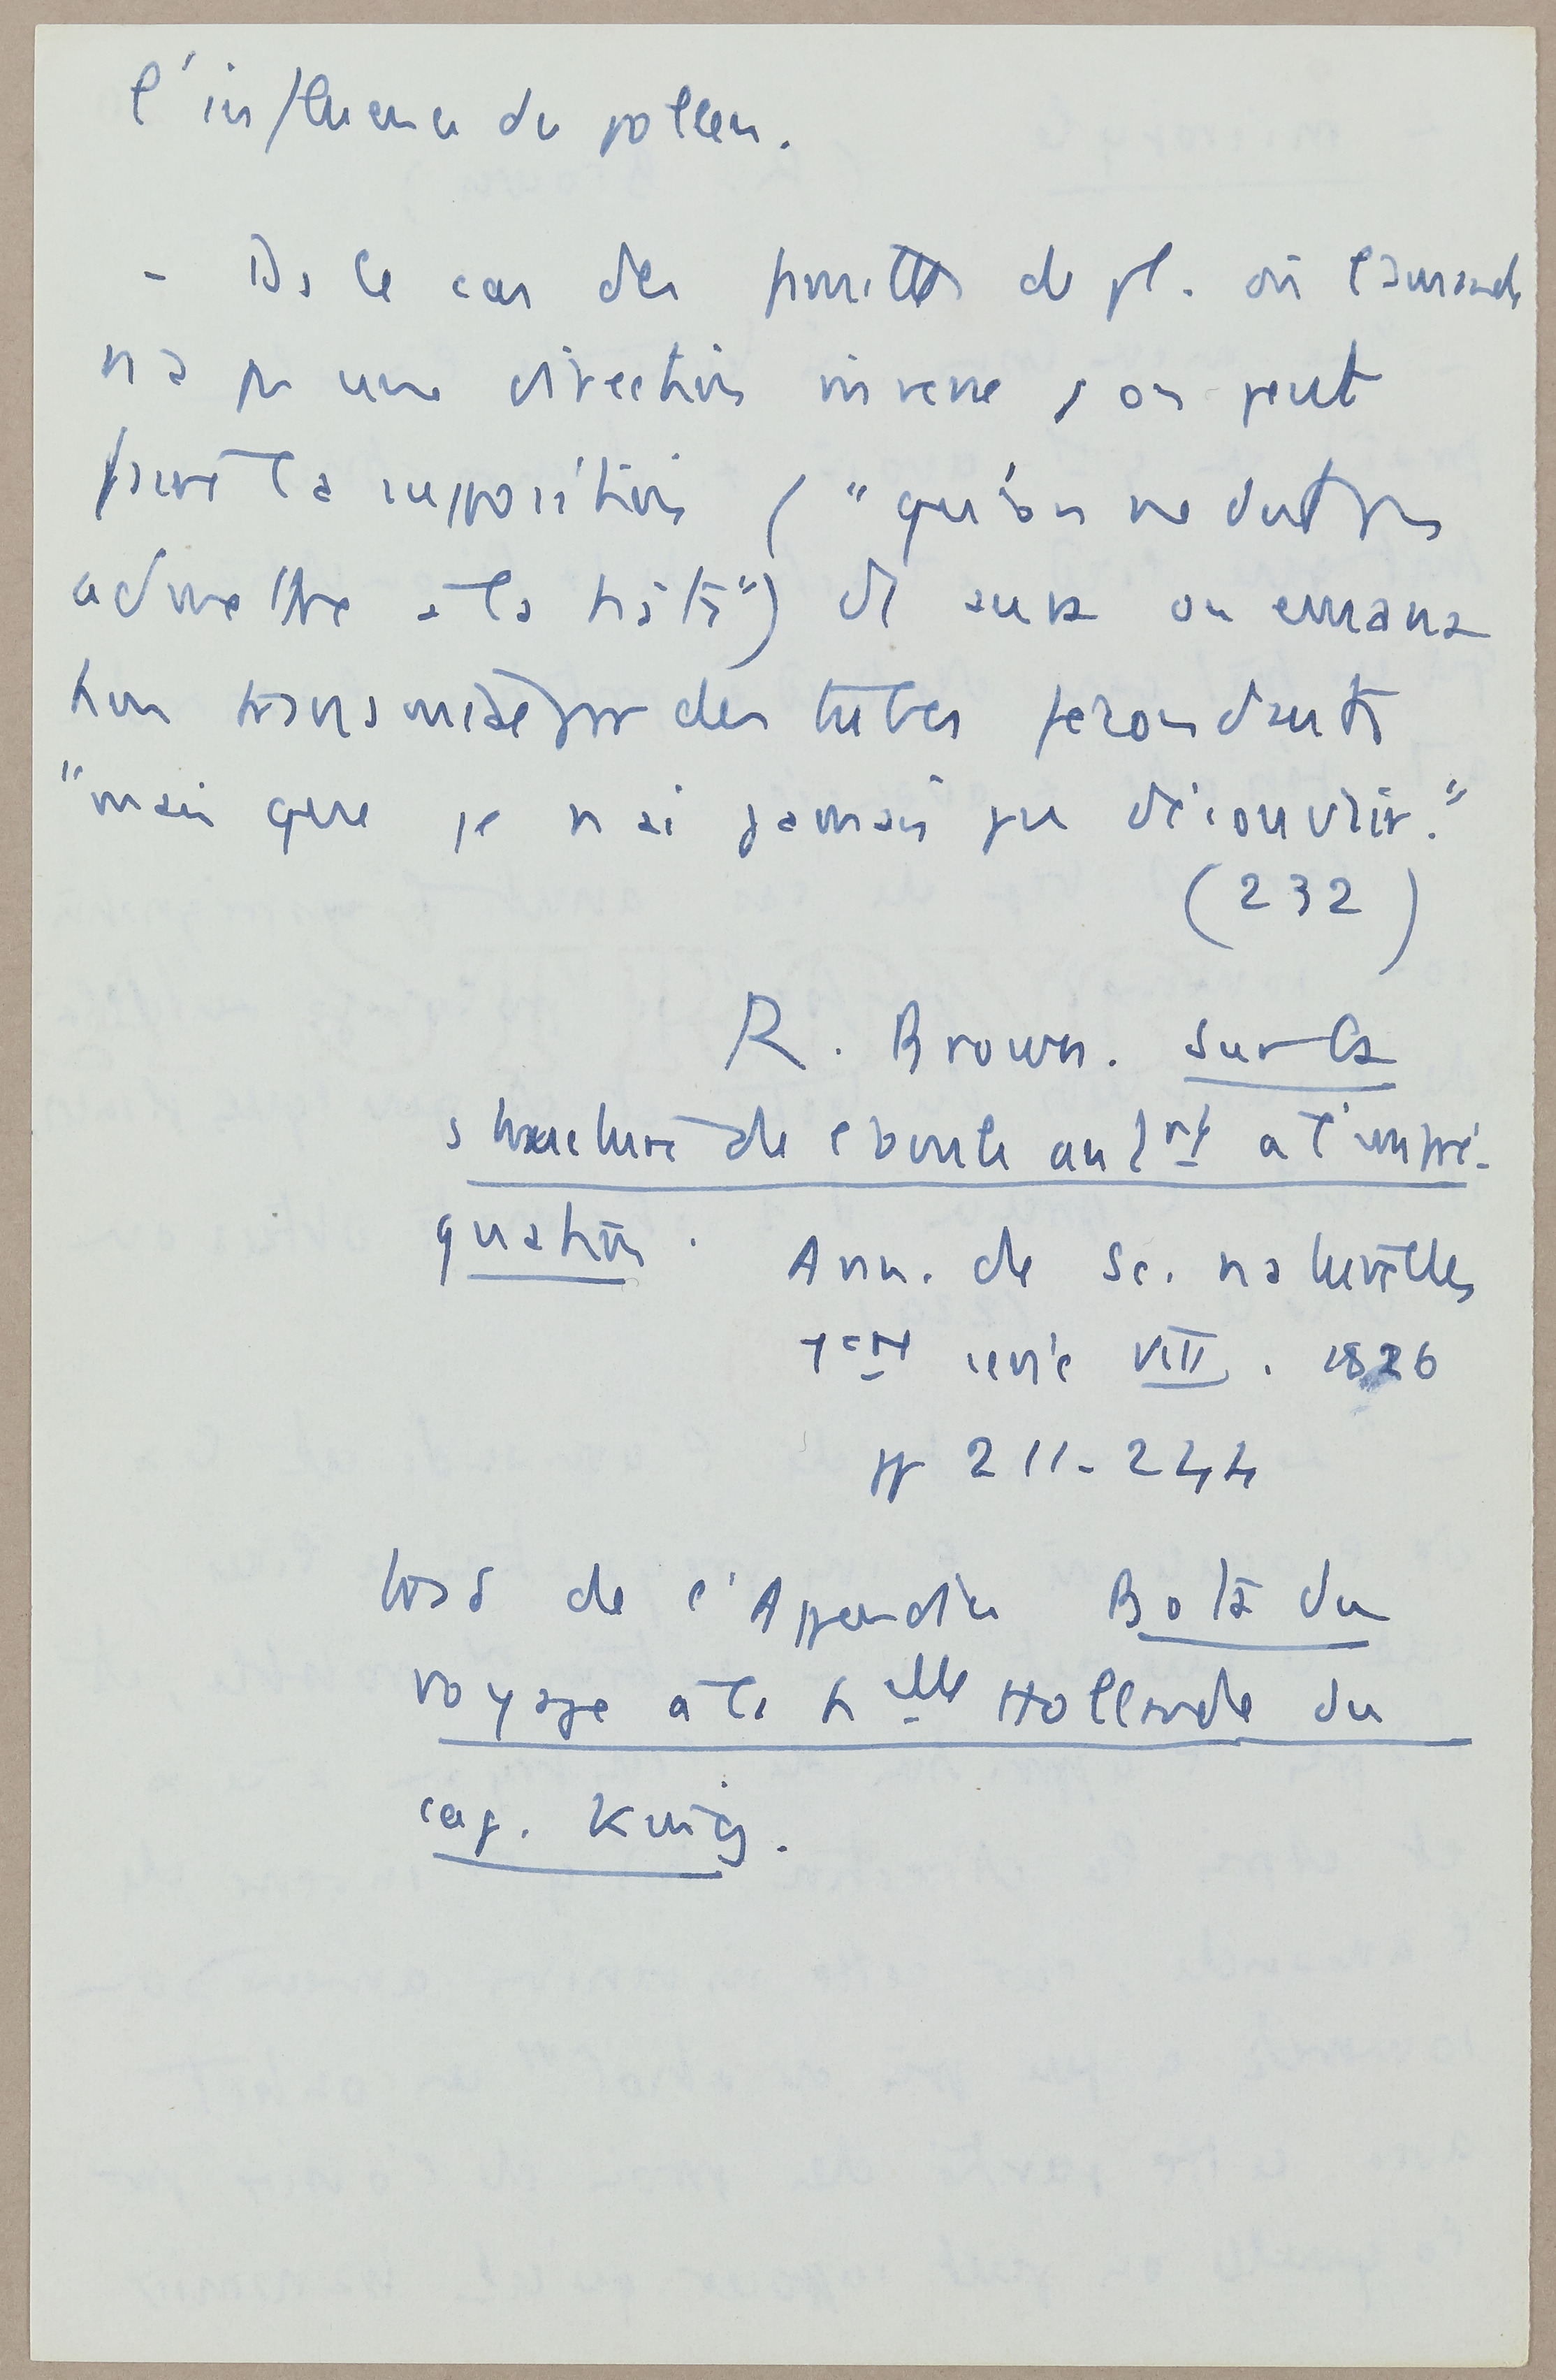 l'influence du pollen.
- Ds le cas des familles de pl. où l'amande
n'a pas une direction inverse, on peut
faire la supposition ("qu'on ne doit pas
admettre à la hâte") d'1 aura ou emana
tion transmise par des tubes fecondants
"mais que je n'ai jamais pu découvrir."
(232)
R. Brown. Sur la
structure de l'ovule antrt à l'impré-
gnation. Ann. de Sc. naturelles
1ere serie VIII. 1826
pp 211-244
trad de l'Appendix Bota du
voyage à la Nlle Hollande du
cap. King.